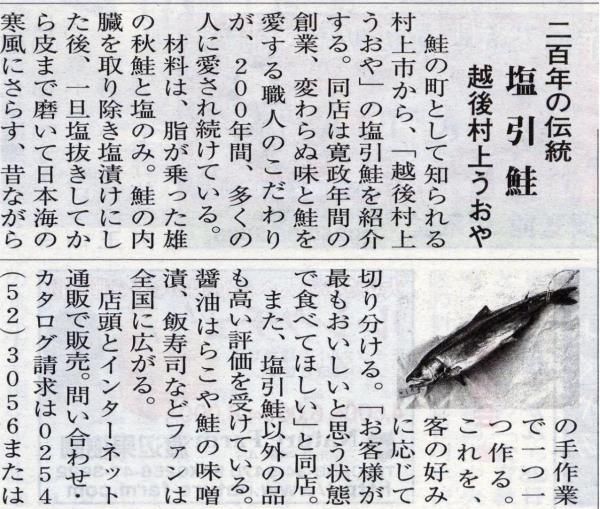 二百年の伝統
塩引鮭
越後村上うおや
鮭の町として知られる
村上市から、「越後村上
うおや」の塩引鮭を紹介
する。同店は寛政年間の
創業、変わらぬ味と鮭を
愛する職人のこだわり
が、200年間、多くの
人に愛され続けている。
材料は、脂が乗った雄
の秋鮭と塩のみ。鮭の内
臓を取り除き塩漬けにし
た後、一旦塩抜きしてか
ら皮まで磨いて日本海の
寒風にさらす、昔ながら
の手作業
で一つ一
つ作る。
これを、
客の好み
に応じて
切り分ける。「お客様が
最もおいしいと思う状態
で食べてほしい」と同店。
また、塩引鮭以外の品
も高い評価を受けている。
醤油はらこや鮭の味噌
漬、飯寿司などファンは
全国に広がる。
店頭とインターネット
通販で販売。問い合わせ・
カタログ請求は0254
(52)3056または